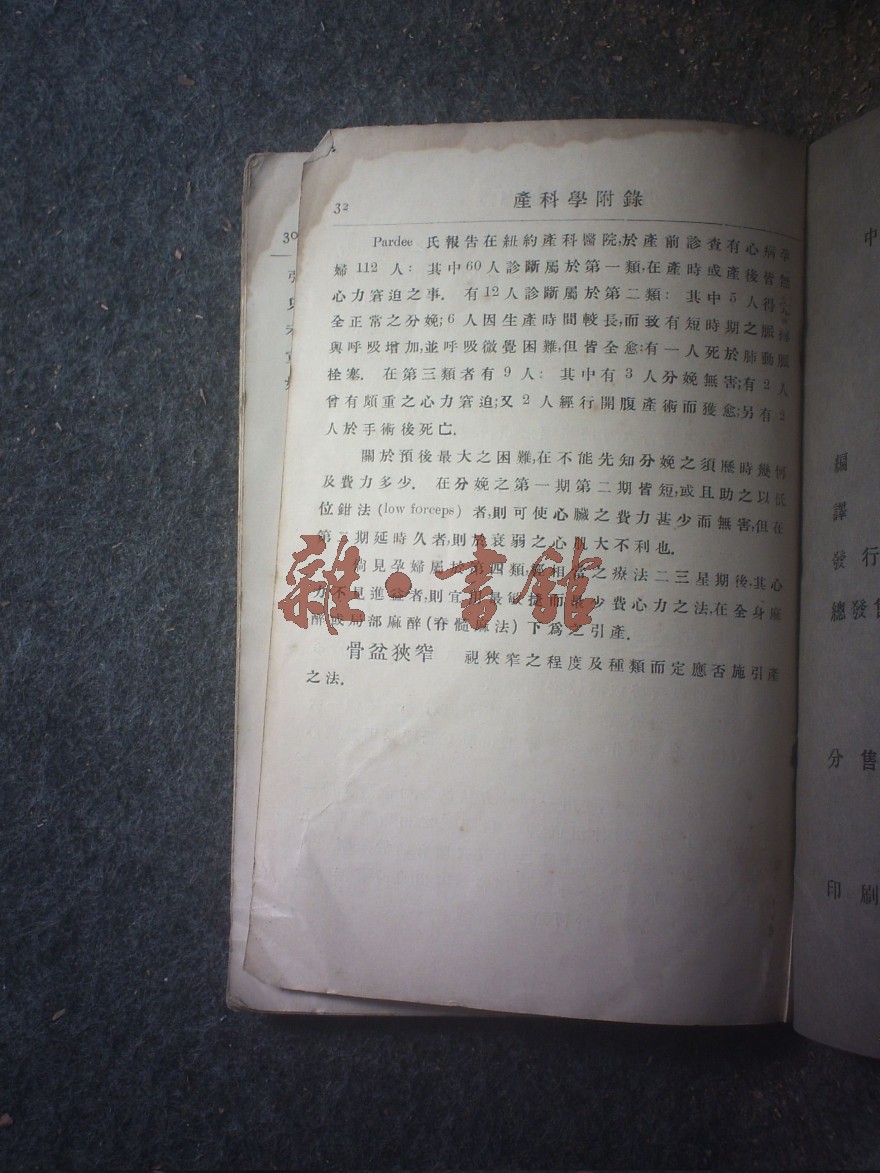 32
產科學附錄
Pardee 氏報告在紐約產科醫院,於產前診查有心病孕
婦 112 人: 其中60人診斷屬於第一類,在產時或產後皆無
心力窘迫之事. 有12人診斷屬於第二類: 其中 5 人得完
全正常之分娩; 6 人因生產時間較長,而致有短時期之脈搏
與呼吸增加,並呼吸微覺困難,但皆全愈;有一人死於肺動脈
栓塞. 在第三類者有 9 人: 其中有 3 人分娩無害;有 2 人
曾有頗重之心力窘迫;又 2 人經行開腹產術而獲愈;另有 2
人於手術後死亡.
關於預後最大之困難,在不能先知分娩之須歷時幾何
及費力多少. 在分娩之第一期第二期皆短,或且助之以低
位鉗法 (low forceps) 者,則可使心臟之費力甚少而無害,但在
第二期延時久者,則於衰弱之心肌大不利也.
倘見孕婦屬於第四類,經相當之療法二三星期後,其心
力不見進益者,則宜用最敏捷而最少費心力之法,在全身麻
醉或局部麻醉(脊髓麻法)下爲之引產.
骨盆狹窄 視狹窄之程度及種類而定應否施引產
之法.
雜·書館
30
中
編
譯
發行
總發售
分售
印刷